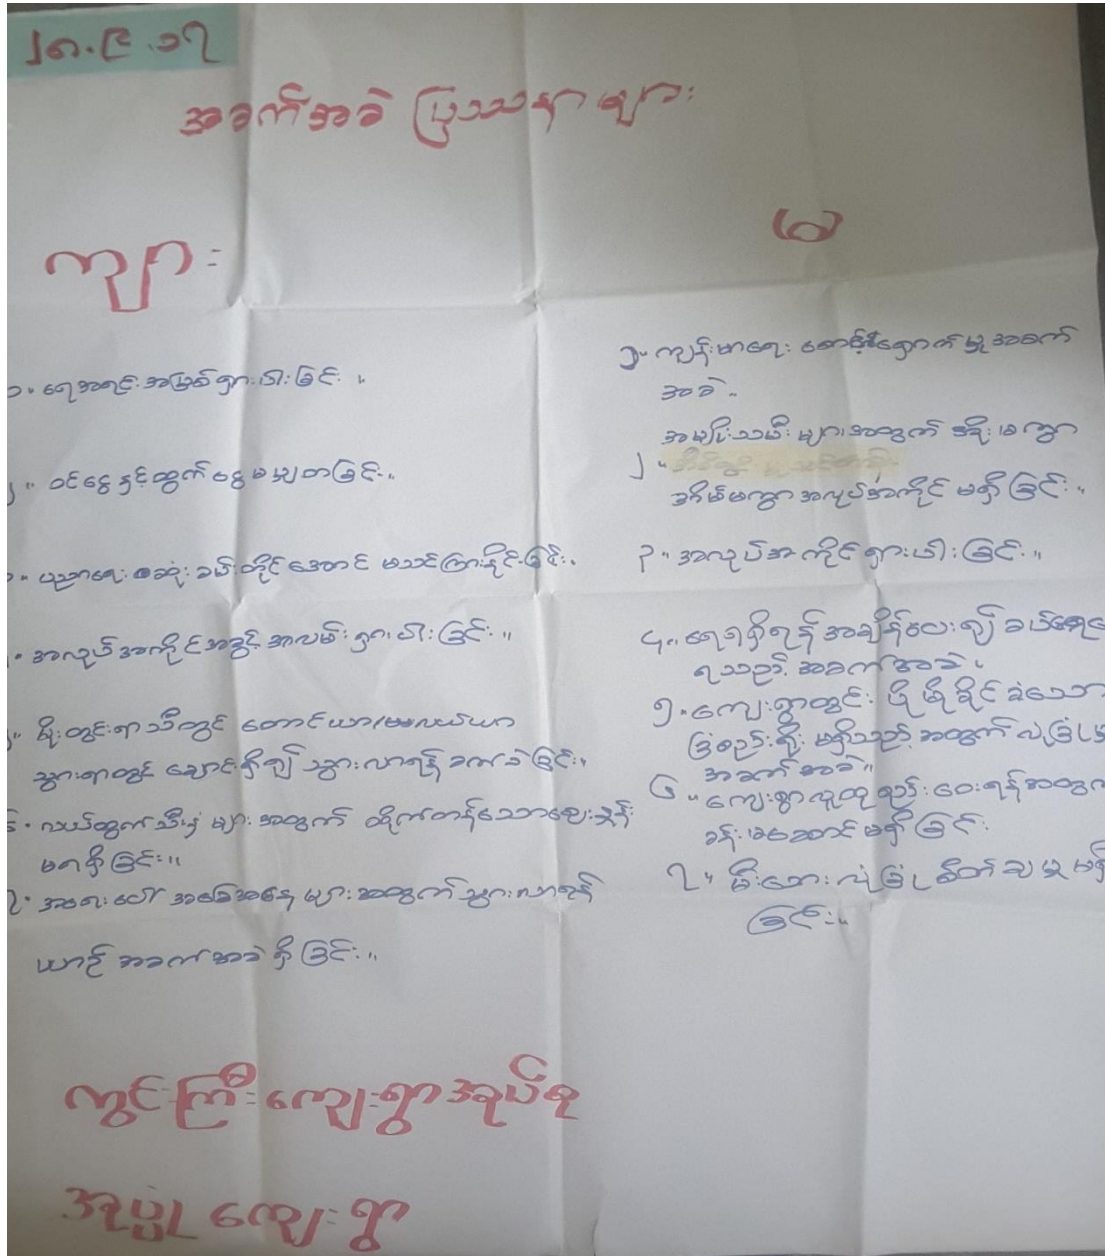 ၂၈.၉.၁၇
အခက်အခဲ ပြဿနာများ
ကျား
၁။ ရေအရင်းအမြစ်ရှားပါးခြင်း ။
၂။ ဝင်ငွေနှင့်ထွက်ငွေမမျှတခြင်း။
ပညာရေး အဆုံးခမ်းတိုင်အောင် မသင်ကြားနိုင်ခြင်း။
အလုပ်အကိုင်အခွင့်အလမ်းရှားပါးခြင်း။
မိုးတွင်းရာသီတွင် တောင်ယာ လယ်ယာ
သွားရာတွင် ချောင်းရှိ၍ သွားလာရန် ခက်ခဲခြင်း။
လယ်ထွက်သီးနှံများအတွက် ထိုက်တန်သောဈေးနှုန်း
မရရှိခြင်း။
၇။ အရေးပေါ် အခြေအနေများအတွက် သွားလာရန်
ယာဉ် အခက်အခဲရှိခြင်း။
မ
၁။ ကျန်းမာရေး စောင့်ရှောက်မှုအခက်
အခဲ။
အမျိုးသမီးများအတွက် အိုးမကွာ
၂။
အိမ်မကွာအလုပ်အကိုင် မရှိခြင်း။
၃။ အလုပ်အကိုင်ရှားပါးခြင်း။
၄။ ရေရရှိရန်အချိန်ပေး၍ ခပ်
ရသည့် အခက်အခဲ။
၅။ ကျေးရွာတွင်း ပိုမိုခိုင်ခံ့သော
ခြံစည်းရိုး မရှိသည့်အတွက် လုံခြုံမှု
အခက်အခဲ။
၆။ ကျေးရွာလူထုစည်းဝေးရန်အတွက်
ခန်းမဆောင်မရှိခြင်း
၇။ မီးဘေးလုံခြုံ စိတ်ချမှုမရှိ
ခြင်း။
ကွင်းကြီးကျေးရွာအုပ်စု
ကျေးရွာ